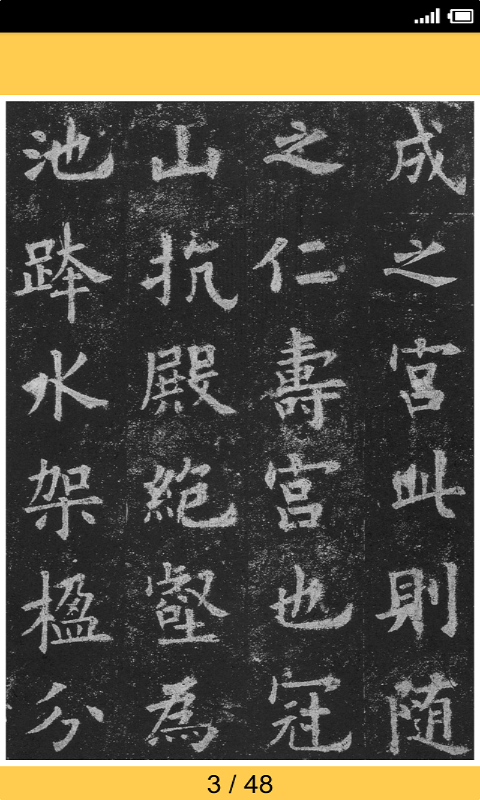 成之宮此則随
之仁壽宮也冠
山抗殿絶壑為
池跨水架楹分
3 / 48